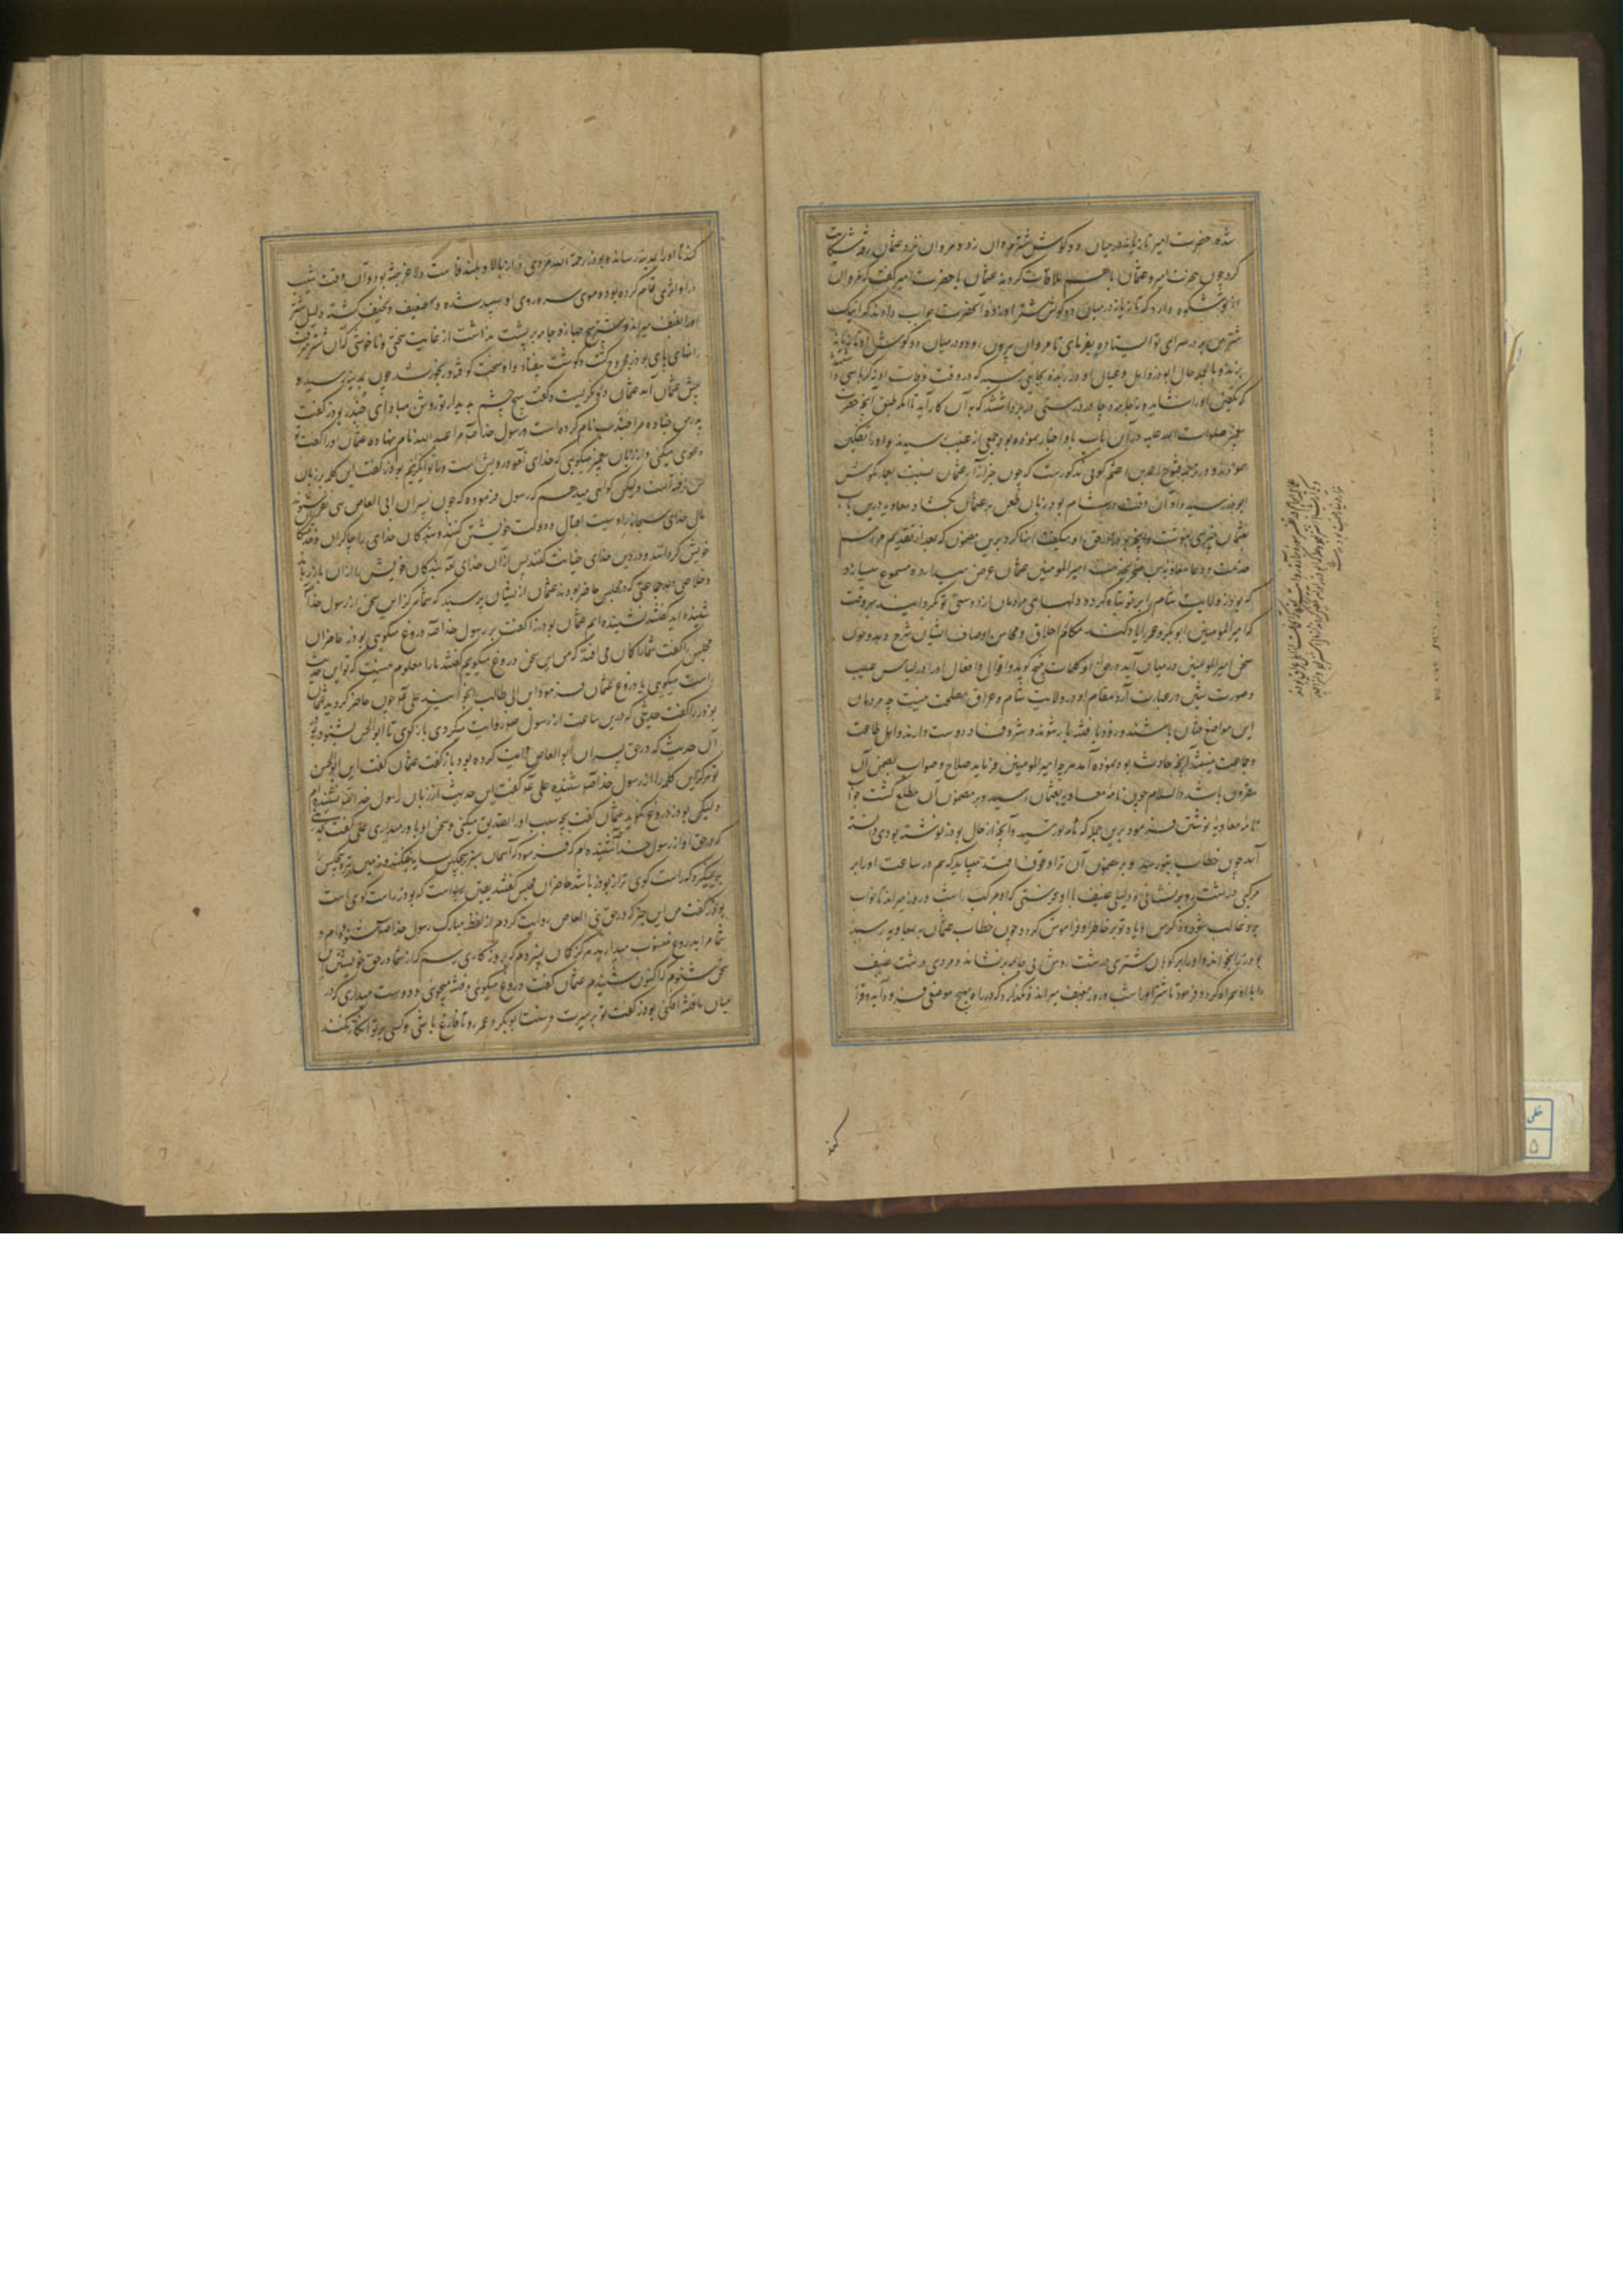 شده حضرت امیر تازیانه در میان دو گوش شتر مروان زد و مروان نزد عثمان رفته شکایت
کرد چون حضرت امیر و عثمان با هم ملاقات کردند عثمان با حضرت امیر گفت که مروان
از تو شکوه دارد که تازیانه در میان دو گوش شتر او زده آنحضرت جواب دادند که اینک
شتر من بر در سرای تو ایستاده بفرمای تا مروان بیرون رود و در میان دو گوش او تازیانه
بزند و بالجمله حال ابوذر و اهل و عیال او در ربذه بجایی رسید که در وقت وفات او نه کرباسی
که تکفین او را شاید و نه جامه درستی در بر داشتند که به آن کار آید تا آنکه طبق آنچه حضرت
پیغمبر صلوات الله علیه در آن باب باو اخبار نموده بود جمعی از غیب رسیدند و او را تکفین
نمودند و در ترجمه فتوح احمد بن اعثم کوفی مذکورست که چون خبر آزار عثمان نسبت بعمار بگوش
ابوذر رسید و او آن وقت در شام بود زبان طعن بر عثمان بگشاد و معاویه درین باب
بعثمان چیزی بنوشت و آنچه بوذر در حق او میگفت انها کرد برین مضمون که بعد از تقدیم مراسم
خدمت و دعا معاویه بن صخر بخدمت امیرالمومنین عثمان عرض میدارد و مسموع میسازد
که بوذر ولایت شام را بر تو تباه کرد و دلهای مردمان از دوستی تو بگردانید هر وقت
که امیرالمومنین ابوبکر و عمر را یاد کنند مکارم اخلاق و محاسن اوصاف ایشان شرح دهد و چون
سخن امیرالمومنین در میان آید در حق او کلمات قبیح گوید و اقوال و افعال او را در لباس عیب
و صورت شین در عبارت آرد مقام او در ولایت شام و عراق مصلحت نیست چه مردمان
این مواضع فتان باشند و زود با فتنه یار شوند و شر و فساد دوست دارند و اهل طاعت
و جماعت نیستند آنچه حادث بود نموده آمد هرچه امیرالمومنین فرماید صلاح و صواب بضمن آن
مقرون باشد والسلام چون نامه معاویه بعثمان رسید و بر مضمون آن مطلع گشت جواب
نامه معاویه نوشتن فرمود برین جمله که نامه تو رسید و آنچه از حال بوذر نوشته بودی دانسته
آمد چون خطاب بتو رسد و بر مضمون آن ترا وقوف افتد میباید که هم در ساعت او را بر
مرکبی درشت رو بنشانی و دلیلی عنیف با او بفرستی که او مرکب را شب و روز میراند تا خواب
برو غالب شود و ذکر من و یاد تو بر خاطر او فراموش گردد چون خطاب عثمان بمعاویه رسید
بوذر را بخواند و او را بر کوهان شتری درشت روش بی جامه بنشاند و مردی درشت عنیف
را با او همراه کرد و فرمود تا شتر او را شب و روز بعنف میراند و نگذارد که در راه هیچ موضعی فرود آید و قرار
کند
کند تا او را بمدینه رساند و بوذر رحمه الله مردی دراز بالا و بلند قامت و لاغر جثه بود و آن وقت شیب
در او اثری تمام کرده بود و موی سر و روی او سپید شده و ضعیف و نحیف گشته دلیل شتر
او را بعنف میراند و شتر هیچ جهاز و جامه بر پشت نداشت از غایت سختی و ناخوشی که آن شتر میرفت
رانهای پای بوذر مجروح گشت و گوشت بیفتاد و او سخت کوفته و رنجور شد چون بمدینه رسید و
پیش عثمان آمد عثمان درو نگریست و گفت هیچ چشم بدیدار تو روشن مباد ای جندب بوذر گفت
پدر من جناده مرا جندب نام کرده است و رسول خدا مرا عبدالله نام نهاده عثمان او را گفت تو
دعوی میکنی و از زبان پیغمبر میگویی که خدای تعالی درویش است و ما توانگریم بوذر گفت این کلمه بر زبان
من نرفته است ولیکن گواهی میدهم که رسول فرموده که چون پسران ابی العاص سی نفر شوند
مال خدای سبحانه را وسیت اقبال و دولت خویشتن کنند و بندگان خدای را چاکران و خدمتکار
خویش گردانند و در دین خدای خیانت کنند پس از آن خدای تعالی بندگان خویش را از آن باز رهاند
و خلاصی دهد جماعتی که در مجلس حاضر بودند عثمان از ایشان پرسید که شما هرگز این سخن از رسول خدا
شنیده اید گفتند نشنیده ایم عثمان بوذر را گفت بر رسول خدا دروغ میگویی بوذر حاضران
مجلس را گفت شما را گمان می افتد که من این سخن دروغ میگویم گفتند ما را معلوم نیست که تو این حدیث
راست میگویی یا دروغ عثمان فرمود ابن ابی طالب را بخوانید علی چون حاضر گردید عثمان
بوذر را گفت حدیثی که درین ساعت از رسول روایت میکردی بازگوی تا ابوالحسن بشنود بوذر
آن حدیث که در حق پسران ابوالعاص روایت کرده بود بازگفت عثمان گفت ای ابوالحسن
تو هرگز این کلمه را از رسول خدا شنیده علی گفت این حدیث از زبان رسول خدا نشنیده ام
ولیکن بوذر دروغ نگوید عثمان گفت بچه سبب او را تصدیق میکنی و سخن او باور میداری علی گفت بحدیثی
که در حق او از رسول خدا شنیده ام که فرمود که آسمان سبز بر هیچکس سایه نیفکند و زمین تیره هیچکس را
برنگیرد که راست گوی تر از بوذر باشد حاضران مجلس گفتند یقین بدانست که بوذر راست گوی است
بوذر گفت من این خبر که در حق بنی العاص روایت کردم از لفظ مبارک رسول خدا شنوده ام و
شما مرا بدروغ منسوب میدارید هرگز گمان نبردم که بروزگاری رسم که از شما در حق خویشتن این
سخن شنوم که اکنون شنیدم عثمان گفت دروغ میگویی و فتنه میجویی و دوست میداری که در
میان ما فتنه افکنی بوذر گفت تو بر سیرت و سنت ابوبکر و عمر رو تا فارغ باشی و کسی بر تو انکار نکند